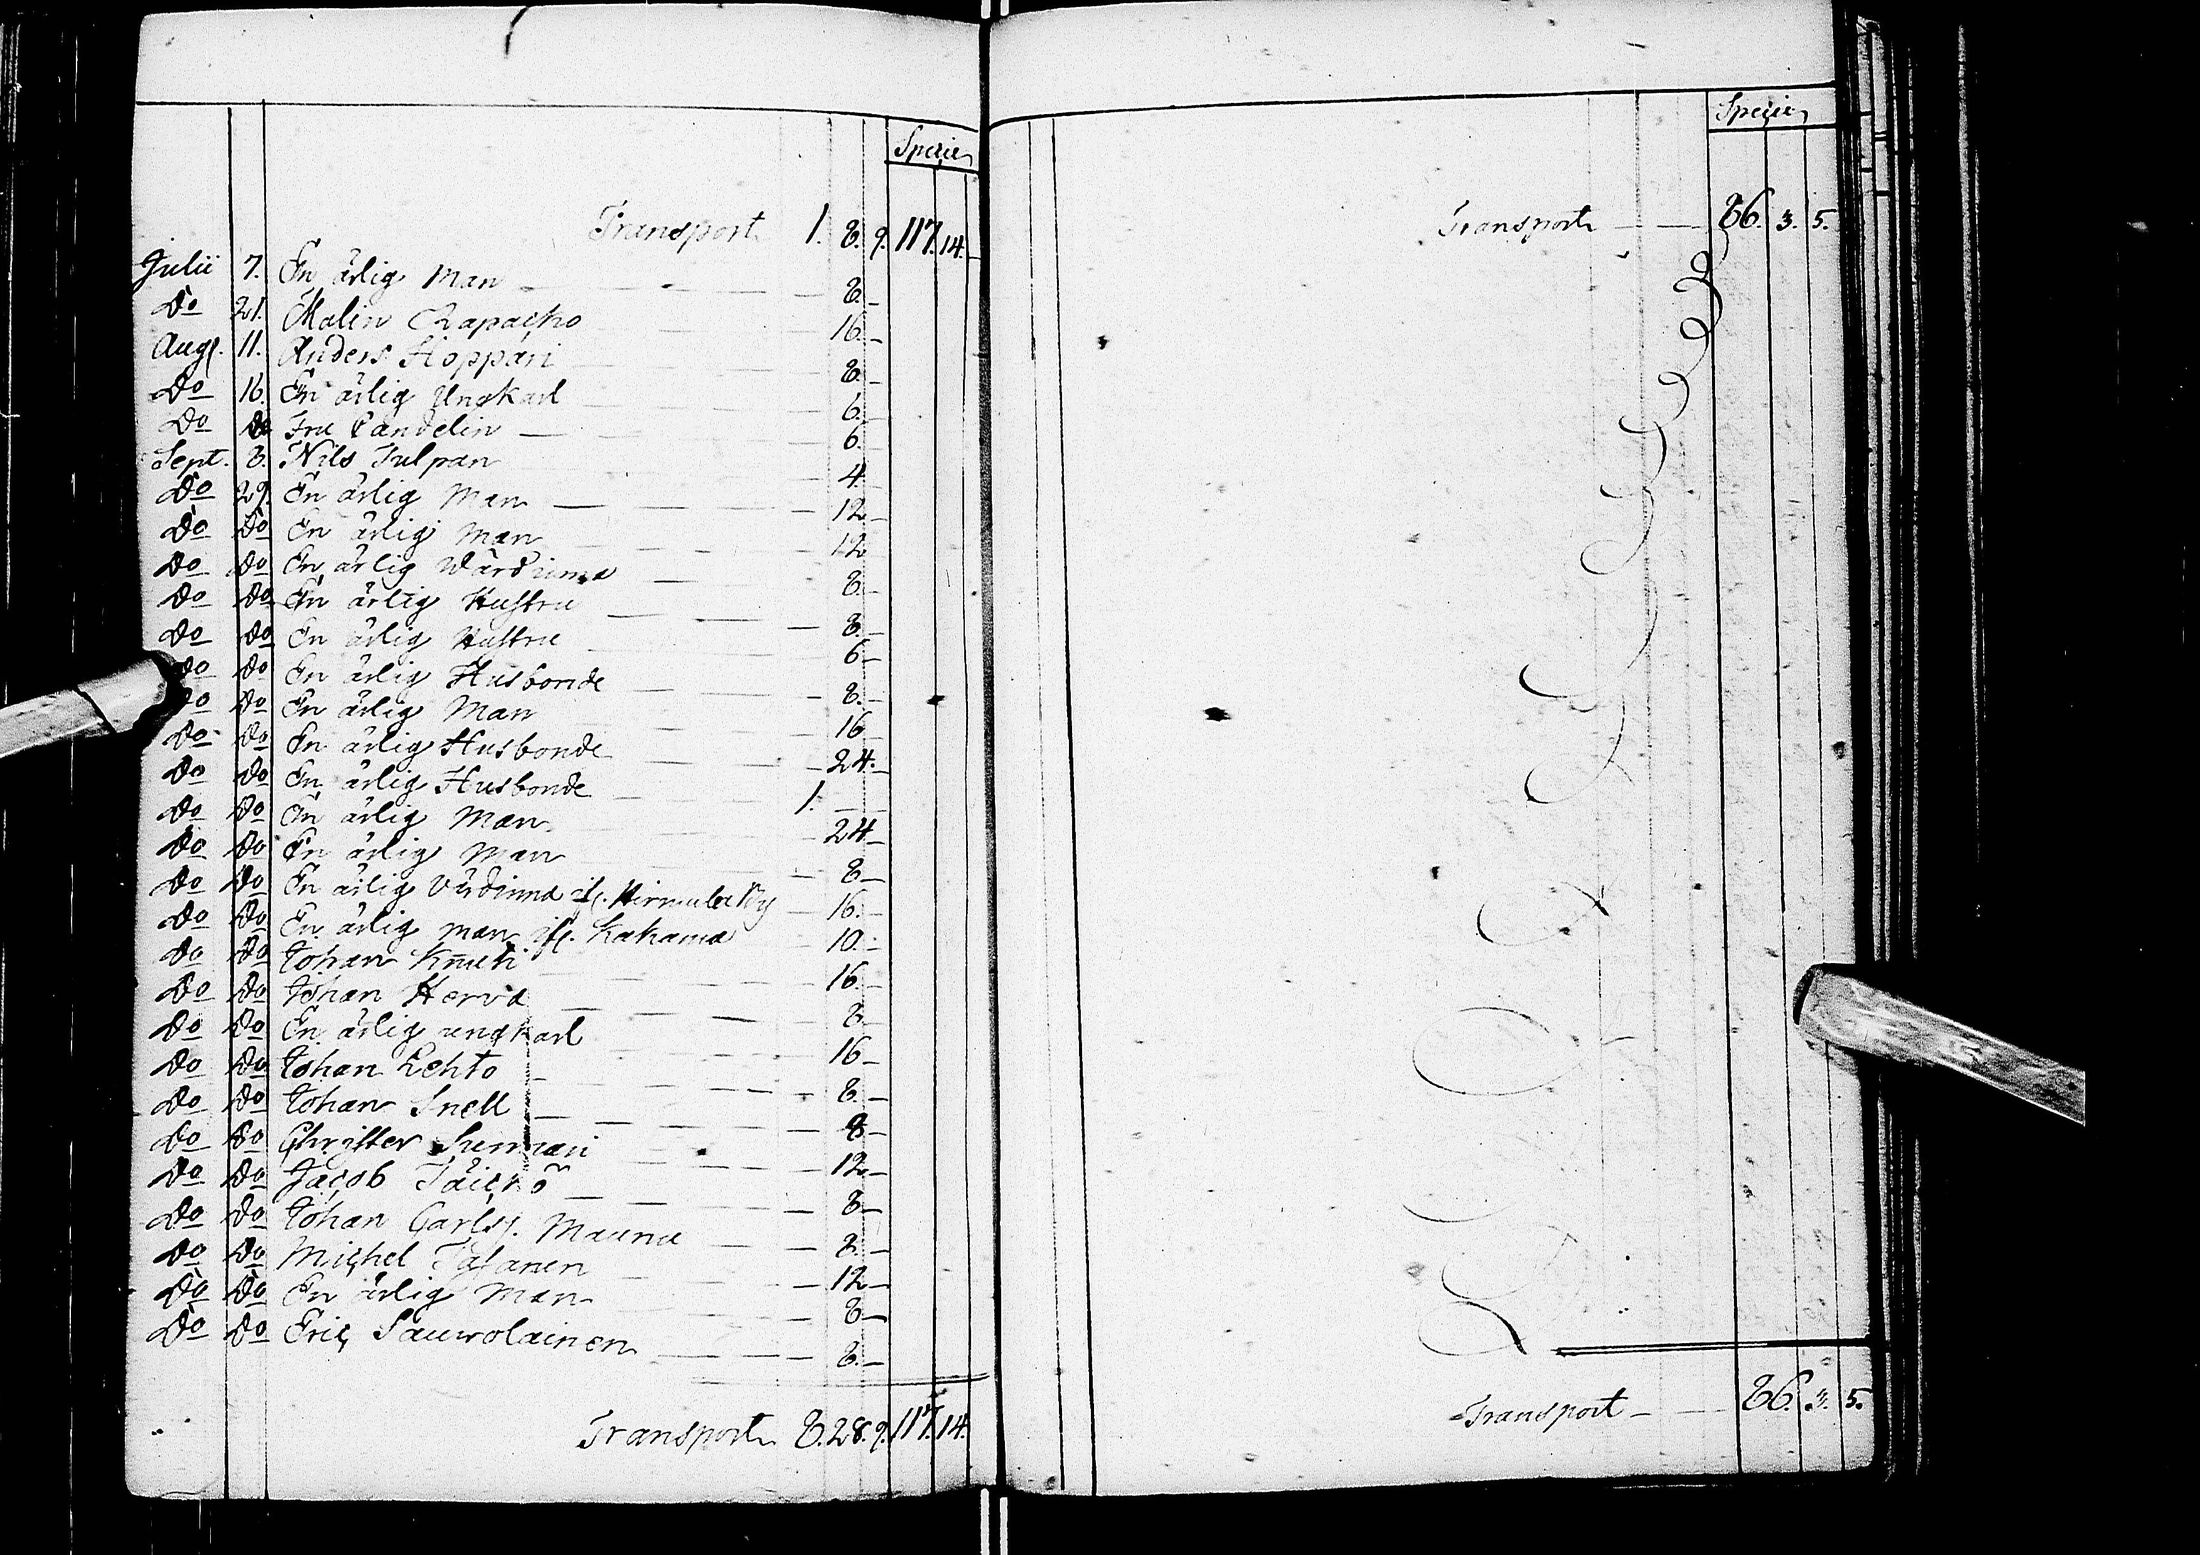 Specie
Transport 1. 8. 9. 117. 14. –
Julii 7. En ärlig Man – – – 8. –
Do 21. Malin Rapacko 16. –
Aug. 11. Anders Hoppari 8. –
Do 16. En ärlig Ungkarl 6. –
Do Do Fru Candelin – 6. –
Sept. 8. Nils Julpan 4. –
Do 29. En ärlig Man – 12 –
Do Do En ärlig Man 12 –
Do Do En ärlig Wärdinna – 8. –
Do Do En ärlig Hustru – 8. –
Do Do En ärlig Hustru 6 –
Do Do En ärlig Husbonde – 8. –
Do Do En ärlig Man 16 –
Do Do En ärlig Husbonde – 24. –
Do Do En ärlig Husbonde – 1. – –
Do Do En ärlig Man 24 –
Do Do En ärlig Man 8 –
Do Do En ärlig Värdinna if. Hirmula By 16. –
Do Do En ärlig man if. Kakama 10. –
Do Do Johan Knuti 16. –
Do Do Johan Herva 8 –
Do Do En ärlig ungkarl 16 –
Do Do Johan Lehto – 8. –
Do Do Johan Snell – 8 –
Do Do Christer 12 –
Do Do Jacob 8 –
Do Do Johan Carls. Mauna 8. –
Do Do Michel 12 –
Do Do En ärlig Man 8 –
Do Do Eric Sauwolainen 8. –
Transport 8. 28. 9. 117. 14.
Specie
Transport – – 86. 3. 5.
Transport – – 86. 3. 5.